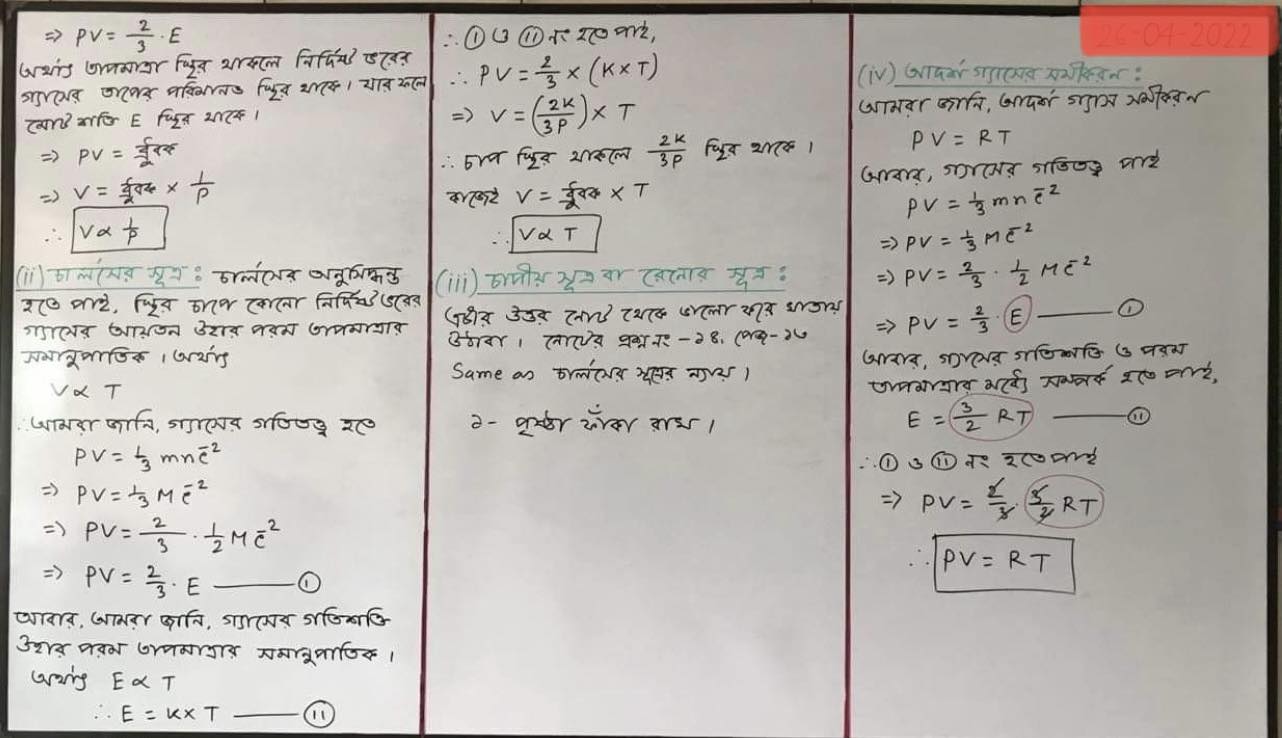 ⇒ PV = 2/3 · E
অর্থাৎ তাপমাত্রা স্থির থাকলে নির্দিষ্ট ভরের
গ্যাসের তাপের পরিমানও স্থির থাকে। যার ফলে
মোট শক্তি E স্থির থাকে।
⇒ PV = ধ্রুবক
⇒ V = ধ্রুবক × 1/P
∴ V ∝ 1/P
(ii) চার্লসের সূত্র : চার্লসের অনুসিদ্ধান্ত
হতে পাই, স্থির চাপে কোনো নির্দিষ্ট ভরের
গ্যাসের আয়তন উহার পরম তাপমাত্রার
সমানুপাতিক। অর্থাৎ
V ∝ T
∴ আমরা জানি, গ্যাসের গতিতত্ত্ব হতে
PV = 1/3 mnc̄²
⇒ PV = 1/3 Mc̄²
⇒ PV = 2/3 · 1/2 Mc̄²
⇒ PV = 2/3 · E —— (i)
আবার, আমরা জানি, গ্যাসের গতিশক্তি
উহার পরম তাপমাত্রার সমানুপাতিক।
অর্থাৎ E ∝ T
∴ E = K × T —— (ii)
∴ (i) ও (ii) নং হতে পাই,
∴ PV = 2/3 × (K × T)
⇒ V = (2K/3P) × T
∴ চাপ স্থির থাকলে 2K/3P স্থির থাকে।
কাজেই V = ধ্রুবক × T
∴ V ∝ T
(iii) চাপীয় সূত্র বা রেনোর সূত্র :
এটার উত্তর নোট থেকে ভালো করে খাতায়
উঠাবা। নোটের প্রশ্ন নং - ১৪, পেজ - ১৬
Same as চার্লসের সূত্রের ন্যায়।
১ - পৃষ্ঠা ফাঁকা রাখ।
26-04-2022
(iv) আদর্শ গ্যাসের সমীকরন :
আমরা জানি, আদর্শ গ্যাস সমীকরন
PV = RT
আবার, গ্যাসের গতিতত্ত্ব পাই
PV = 1/3 mnc̄²
⇒ PV = 1/3 Mc̄²
⇒ PV = 2/3 · 1/2 Mc̄²
⇒ PV = 2/3 · E —— (i)
আবার, গ্যাসের গতিশক্তি ও পরম
তাপমাত্রার মধ্যে সম্পর্ক হতে পাই,
E = 3/2 RT —— (ii)
∴ (i) ও (ii) নং হতে পাই
⇒ PV = 2/3 · 3/2 RT
∴ PV = RT